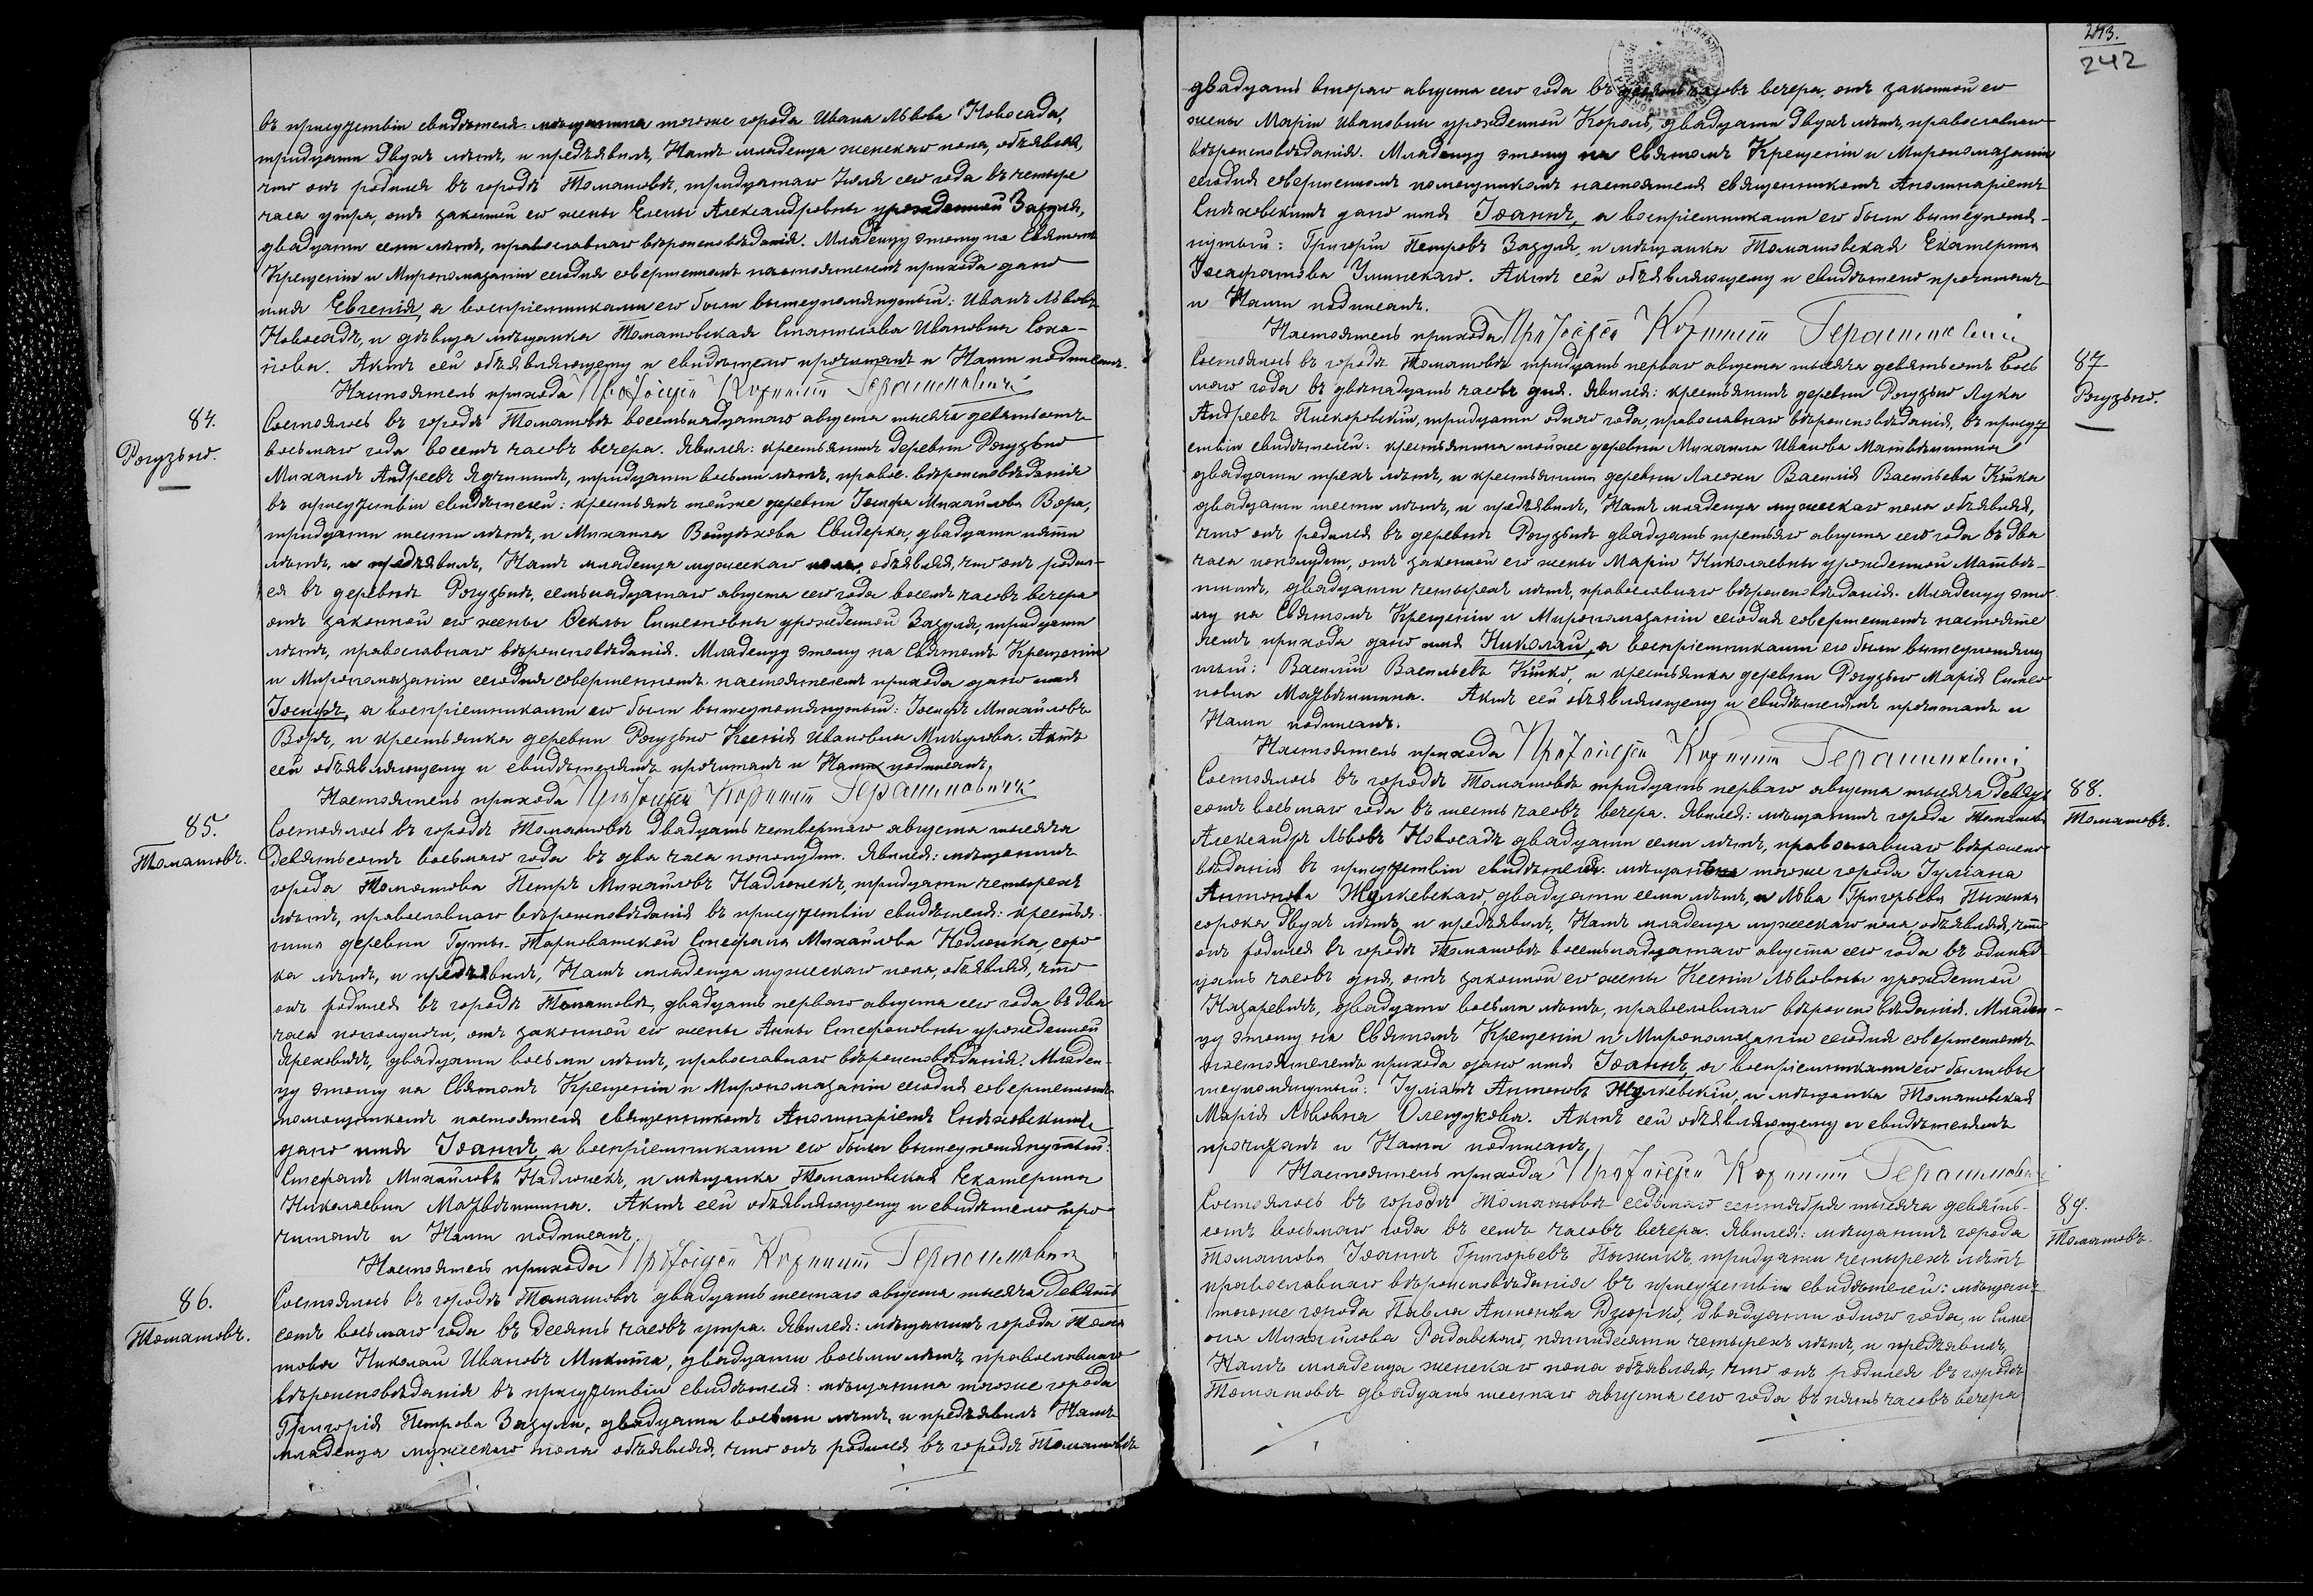 въ присутствіи свидѣтеля мѣщанина тогоже города Ивана Львова Новосада,
тридцати двухъ лѣтъ, и предъявилъ Намъ младенца женскаго пола, объявляя,
что онъ родился въ городѣ Томашовѣ, тридцатаго Іюля сего года въ четыре
часа утра, отъ законной его жены Елены Александровны урожденной Зазуля,
двадцати семи лѣтъ, православнаго вѣроисповѣданія. Младенцу этому на Святомъ
Крещеніи и Миропомазаніи сегодня совершенномъ настоятелемъ прихода дано
имя Евгенія, а воспріемниками его были вышеупомянутый: Иванъ Львовъ
Новосадъ, и дѣвица мѣщанка Томашовская Станислава Ивановна Сока-
лова. Актъ сей объявляющему и свидѣтелю прочитанъ и Нами подписанъ.
Настоятель прихода Протоіерей Корнилій Герашиновичъ
84.
Рогузьно.
Состоялось въ городѣ Томашовѣ восемьнадцатаго августа тысяча девятьсотъ
восьмаго года восемь часовъ вечера. Явился: крестьянинъ деревни Рогузьно
Михаилъ Андреевъ Ядчишинъ, тридцати восьми лѣтъ, правос. вѣроисповѣданія
въ присутствіи свидѣтелей: крестьянъ тойже деревни Іосифа Михайлова Вора,
тридцати шести лѣтъ, и Михаила Войцѣхова Свидерка, двадцати пяти
лѣтъ, и предъявилъ, Намъ младенца мужескаго пола, объявляя, что онъ родил-
ся въ деревнѣ Рогузьнѣ, семьнадцатаго августа сего года восемь часовъ вечера
отъ законной его жены Феклы Симеоновны урожденной Зазуля, тридцати
лѣтъ, православнаго вѣроисповѣданія. Младенцу этому на Святомъ Крещеніи
и Миропомазаніи сегодня совершенномъ настоятелемъ прихода дано имя
Іосифъ, а воспріемниками его были вышеупомянутый: Іосифъ Михайловъ
Воръ, и крестьянка деревни Рогузьно Ксенія Ивановна Микулова. Актъ
сей объявляющему и свидѣтелямъ прочитанъ и Нами подписанъ,
Настоятель прихода Протоіерей Корнилій Герашиновичъ
85.
Томашовъ.
Состоялось въ городѣ Томашовѣ двадцать четвертаго августа тысяча
девятьсотъ восьмаго года въ два часа пополудни. Явился: мѣщанинъ
города Томашова Петръ Михайловъ Надлонекъ, тридцати четырехъ
лѣтъ, православнаго вѣроисповѣданія въ присутствіи свидѣтеля: крестья-
нина деревни Гуты-Тарноватской Стефана Михайлова Надлонка, соро
ка лѣтъ, и предъявилъ, Намъ младенца мужескаго пола, объявляя, что
онъ родился въ городѣ Томашовѣ, двадцать перваго августа сего года въ два
часа пополуночи, отъ законной его жены Анны Стефановны урожденной
двадцати восьми лѣтъ, православнаго вѣроисповѣданія. Младен-
цу этому на Святомъ Крещеніи и Миропомазаніи сегодня совершенномъ
помощникомъ настоятеля священникомъ Аполинаріемъ Снѣховскимъ
дано имя Іоаннъ, а воспріемниками его были вышеупомянутый:
Стефанъ Михайловъ Надлонекъ, и мѣщанка Томашовская Екатерина
Николаевна Матвѣишина. Актъ сей объявляющему и свидѣтелю про-
читанъ и Нами подписанъ.
Настоятель прихода Протоіерей Корнилій Герашиновичъ
86.
Томашовъ.
Состоялось въ городѣ Томашовѣ двадцать шестаго августа тысяча девять
сотъ восьмаго года въ десять часовъ утра. Явился: мѣщанинъ города Тома
шова Николай Ивановъ Микита, двадцати восьми лѣтъ, православнаго
вѣроисповѣданія въ присутствіи свидѣтеля: мѣщанина тогоже города
Григорія Петрова Зазули, двадцати восьми лѣтъ, и предъявилъ Намъ
младенца мужескаго пола объявляя, что онъ родился въ городѣ Томашовѣ
243.
242
двадцать втораго августа сего года въ часовъ вечера, отъ законной его
жены Маріи Ивановны урожденной Король, двадцати двухъ лѣтъ, православнаго
вѣроисповѣданія. Младенцу этому на Святомъ Крещеніи и Миропомазаніи
сегодня совершенномъ помощникомъ настоятеля священникомъ Аполинаріемъ
Снѣховскимъ дано имя Іоаннъ, а воспріемниками его были вышеупомя-
нутый: Григорій Петровъ Зазуля, и мѣщанка Томашовская Екатерина
Іосафатова. Актъ сей объявляющему и свидѣтелю прочитанъ
и Нами подписанъ.
Настоятель прихода Протоіерей Корнилій Герашиновичъ
87
Рогузьно.
Состоялось въ городѣ Томашовѣ тридцать перваго августа тысяча девятьсотъ вось
маго года въ двѣнадцать часовъ дня. Явился: крестьянинъ деревни Рогузьно Лука
Андреевъ Пискоровскій, тридцати одного года, православнаго вѣроисповѣданія, въ присут
ствіи свидѣтелей: крестьянина тойже деревни Михаила Иванова Матвѣишина
двадцати трехъ лѣтъ, и крестьянина деревни Василія Васильева Кийка
двадцати шести лѣтъ, и предъявилъ, Намъ младенца мужескаго пола объявляя,
что онъ родился въ деревнѣ Рогузьнѣ двадцать третьяго августа сего года въ два
часа пополудни, отъ законной его жены Маріи Николаевны урожденной Матвѣи-
шинъ, двадцати четырехъ лѣтъ, православнаго вѣроисповѣданія. Младенцу это
му на Святомъ Крещеніи и Миропомазаніи сегодня совершенномъ настояте
лемъ прихода дано имя Николай, а воспріемниками его были вышеупомяну
тый: Василій Васильевъ Кийко, и крестьянка деревни Рогузьно Марія Симео
новна Матвѣишина. Актъ сей объявляющему и свидѣтелямъ прочитанъ и
Нами подписанъ.
Настоятель прихода Протоіерей Корнилій Герашиновичъ
88.
Томашовъ.
Состоялось въ городѣ Томашовѣ тридцать перваго августа тысяча девять
сотъ восьмаго года въ шесть часовъ вечера. Явился: мѣщанинъ города Томашова
Александръ Львовъ Новосадъ двадцати семи лѣтъ, православнаго вѣроиспо
вѣданія въ присутствіи свидѣтелей: мѣщанъ тогоже города Іуліана
Антонова Жулкевскаго, двадцати семи лѣтъ, и Льва Григорьева Пыжика
сорока двухъ лѣтъ, и предъявилъ, Намъ младенца мужескаго пола объявляя, что
онъ родился въ городѣ Томашовѣ восемьнадцатаго августа сего года въ одинад
цать часовъ дня, отъ законной его жены Ксеніи Львовны урожденной
Назаревичъ, двадцати восьми лѣтъ, православнаго вѣроисповѣданія. Младен-
цу этому на Святомъ Крещеніи и Миропомазаніи сегодня совершенномъ
настоятелемъ прихода дано имя Іоаннъ, а воспріемниками его были вы
шеупомянутый: Іуліанъ Антоновъ Жулкевскій, и мѣщанка Томашовская
Марія Львовна Олещукова. Актъ сей объявляющему и свидѣтелямъ
прочитанъ и Нами подписанъ,
Настоятель прихода Протоіерей Корнилій Герашиновичъ
89.
Томашовъ.
Состоялось въ городѣ Томашовѣ седьмаго сентября тысяча девять-
сотъ восьмаго года въ семь часовъ вечера. Явился: мѣщанинъ города
Томашова Іоаннъ Григорьевъ Пыжикъ, тридцати четырехъ лѣтъ
православнаго вѣроисповѣданія въ присутствіи свидѣтелей: мѣщанъ
тогоже города Павла Антонова Дзюрко, двадцати одного года, и Симе
она Михайлова Радавскаго, пятидесяти четырехъ лѣтъ, и предъявилъ,
Намъ младенца женскаго пола объявляя, что онъ родился въ городѣ
Томашовѣ двадцать шестаго августа сего года въ пять часовъ вечера